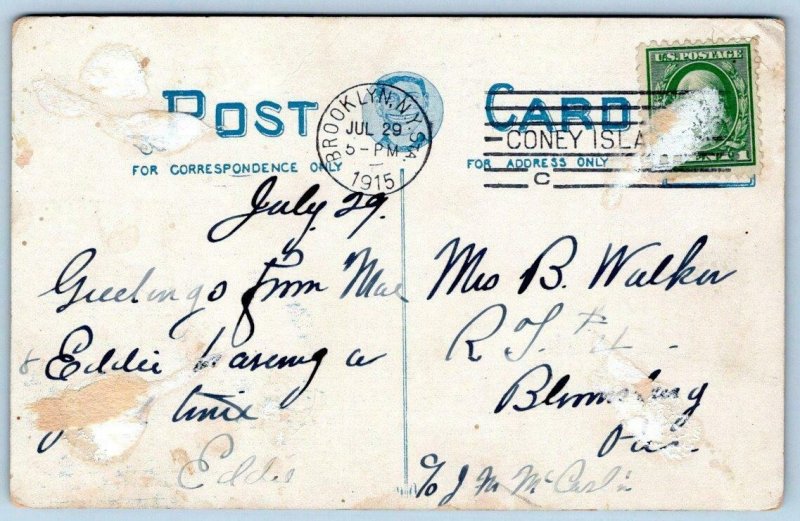 POST CARD
FOR CORRESPONDENCE ONLY
FOR ADDRESS ONLY
BROOKLYN, N.Y. STA.
JUL 29
5-PM
1915
CONEY ISLA
C
U.S. POSTAGE
1
July 29.
Greetings from Mae
& Eddie having a
time
Eddie
Mrs B. Walker
R F
Bloomsburg
Pa.
c/o J M McCaslin